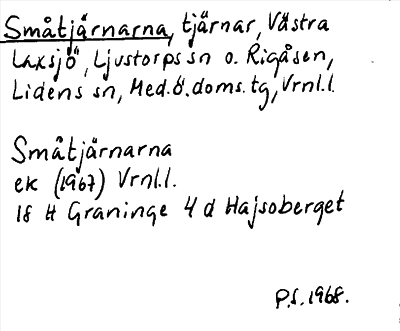 Småtjärnarna, tjärnar, Västra
Laxsjö, Ljustorps sn o. Rigåsen,
Lidens sn, Med.ö.doms.tg, Vrnl.l.
Småtjärnarna
ek (1967) Vrnl.l.
18 H Graninge 4 d Hajsoberget
P.S. 1968.